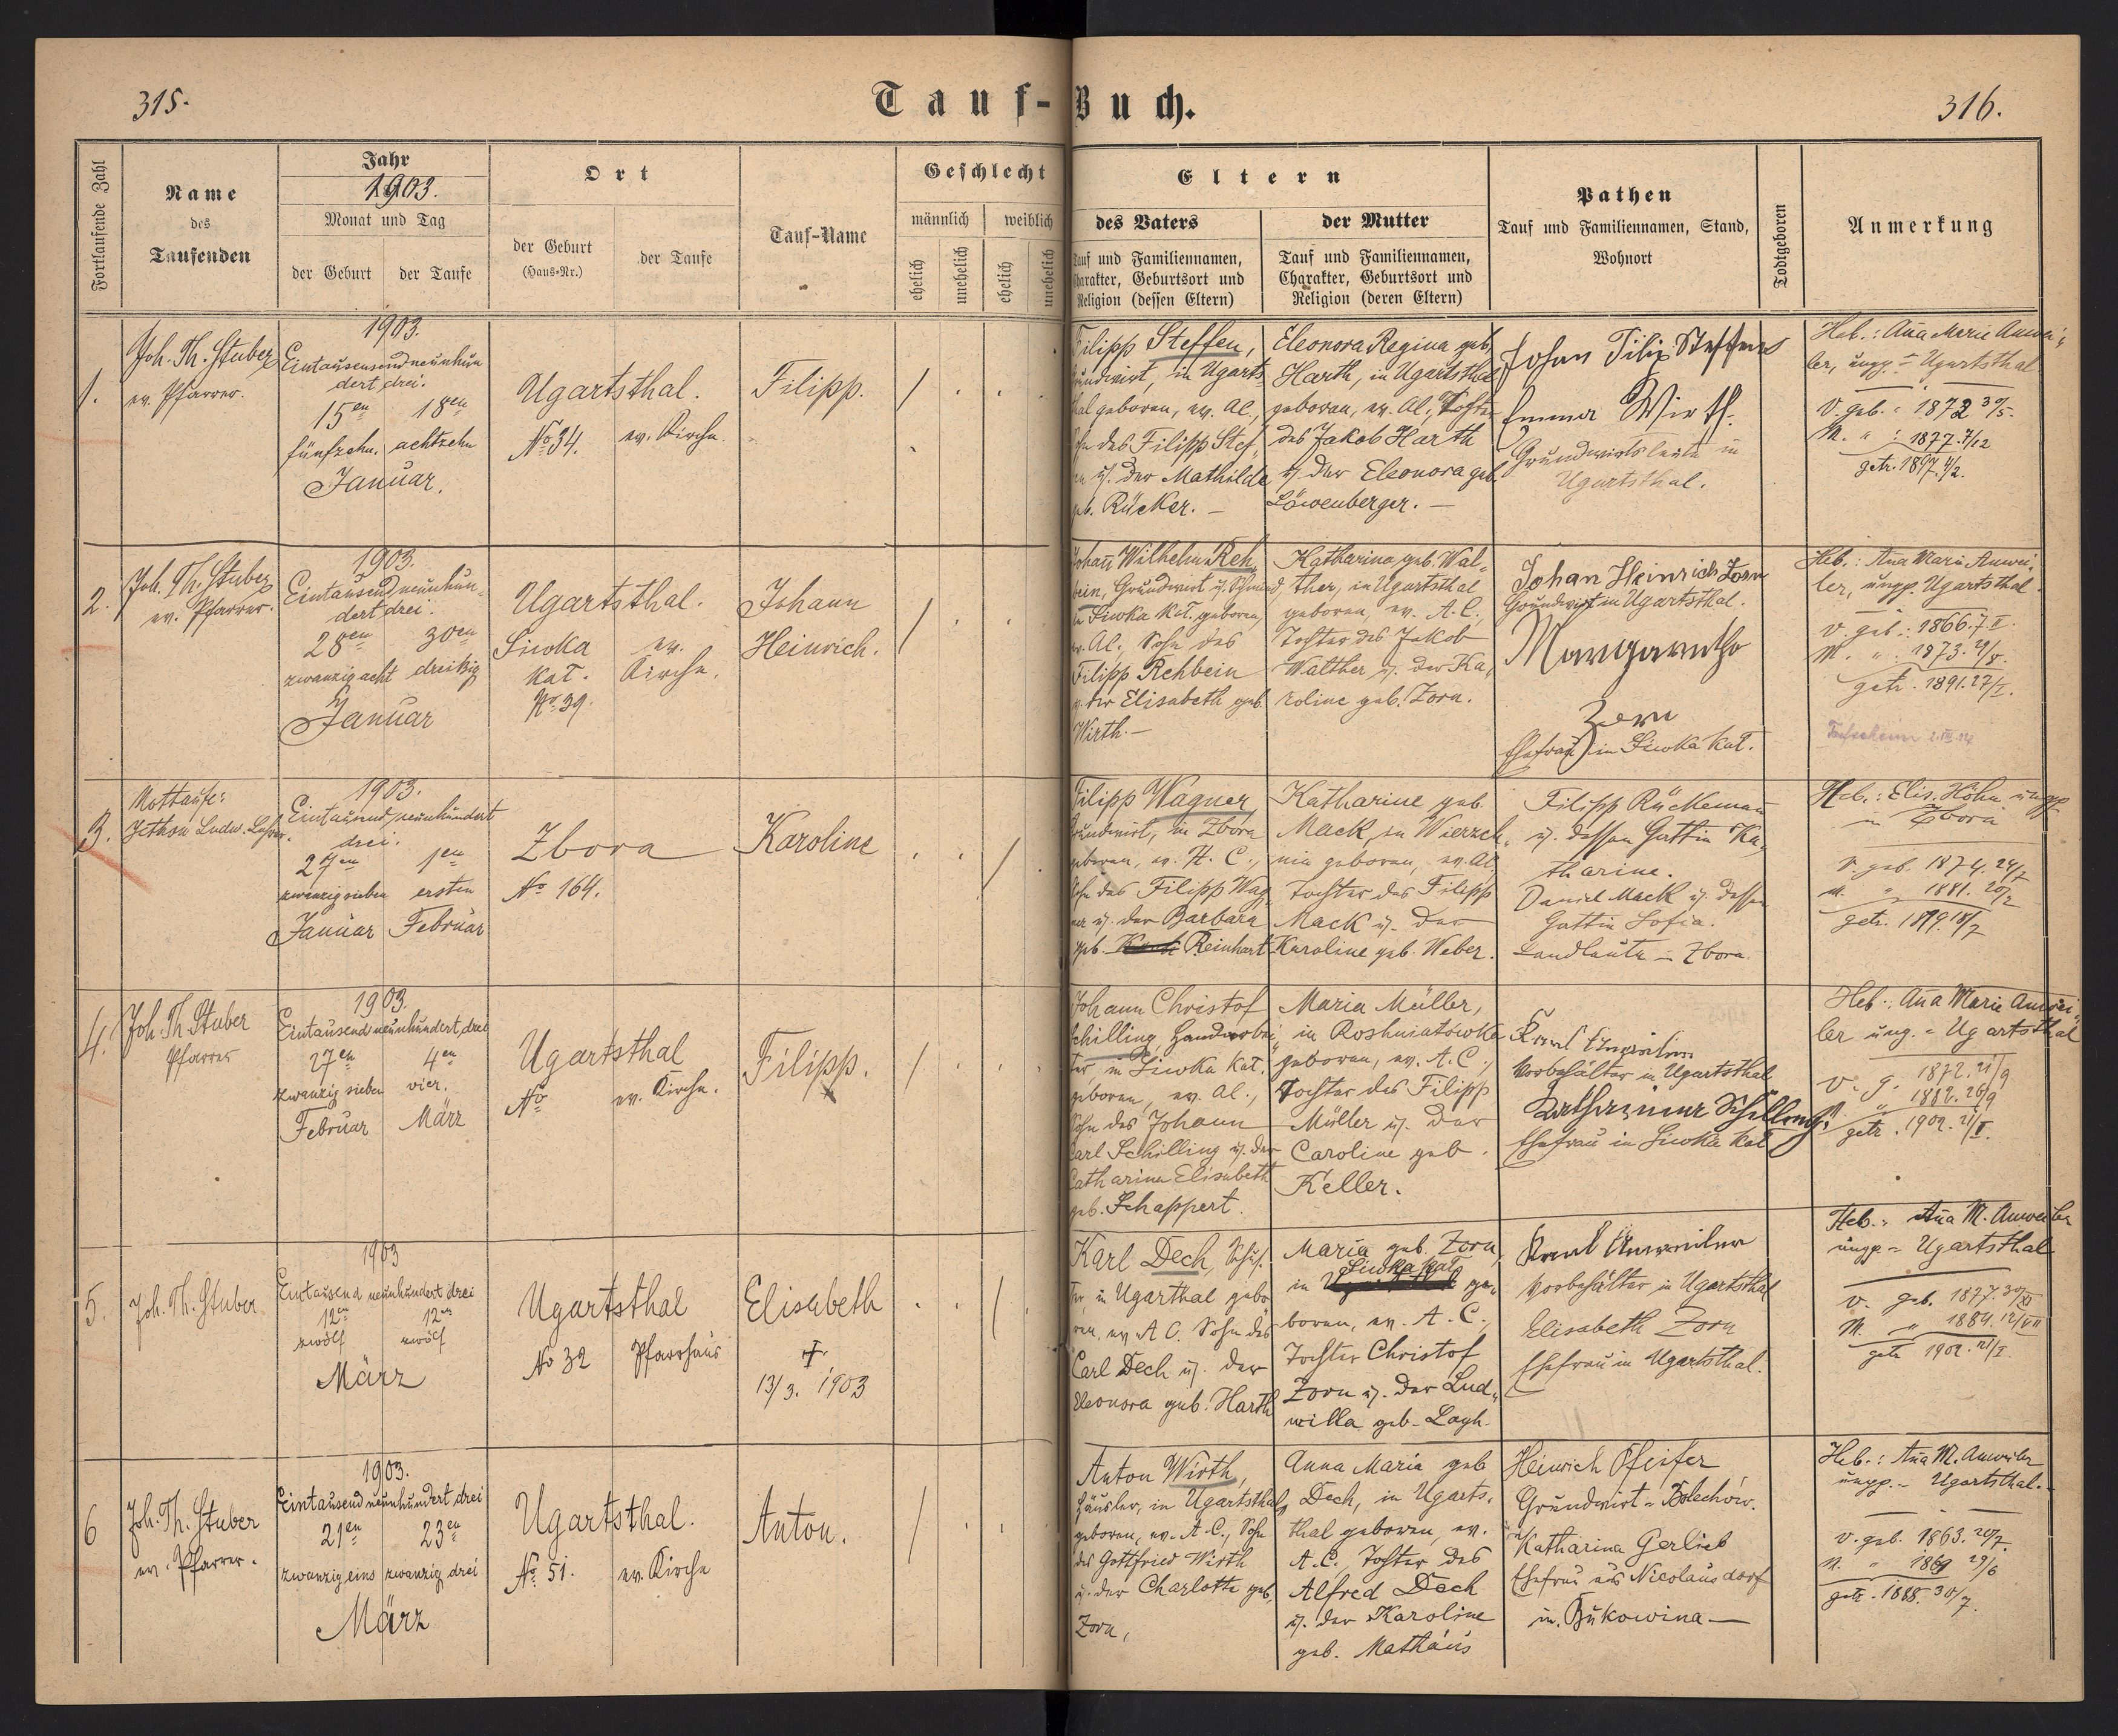 315.
Tauf-Buch.
316.
Fortlaufende Zahl
Name
des
Taufenden
Jahr
1903.
Monat und Tag
der Geburt
der Taufe
Ort
der Geburt
(Haus-Nr.)
der Taufe
Tauf-Name
Geschlecht
männlich
weiblich
ehelich
unehelich
ehelich
unehelich
Eltern
des Vaters
Tauf und Familiennamen,
Charakter, Geburtsort und
Religion (dessen Eltern)
der Mutter
Tauf und Familiennamen,
Charakter, Geburtsort und
Religion (deren Eltern)
Pathen
Tauf und Familiennamen, Stand,
Wohnort
Todtgeboren
Anmerkung
1.
Joh. Th. Stuber
ev. Pfarrer.
1903.
dert drei.
15en 18en
fünfzehn. achtzehn
Januar.
Ugartsthal.
No 34. ev. Kirche.
Filipp.
Filipp Steffen,
Grundwirt, in Ugarts
thal geboren, ev. Al.,
Sohn des Filipp Stef
en u. der Mathilde
geb. Rücker. —
Eleonora Regina geb.
Harth, in Ugartsthal
geboren, ev. Al., Tochter
des Jakob Harth
u. der Eleonora geb.
Löwenberger. —
Johan Filip Steffens
Emma Wirth.
Grundwirtsleute in
Ugartsthal.
Heb.: Ana Marie Anwei-
ler, ungp. = Ugartsthal
V. geb. : 1872 30/5.
M. " : 1877. 7/12
getr. 1897. 4/2.
2.
Joh. Th. Stuber
ev. Pfarrer.
1903.
Eintausend neunhun-
dert drei.
28en 30en
zwanzig acht dreißig
Januar
Ugartsthal.
Siwka ev.
Kat. Kirche.
No 39.
Johann
Heinrich.
Johann Wilhelm Reh
bein, Grundwirt u. Schmied
in Siwka Kat. geboren,
ev. Al., Sohn des
Filipp Rehbein
u. der Elisabeth geb.
Wirth. —
Katharina geb. Wal-
ther, in Ugartsthal
geboren, ev. A. C.,
Tochter des Jakob
Walther u. der Ka-
roline geb. Zorn.
Johan Heinrich Zorn
Grundwirt in Ugartsthal.
Margaretha
Zorn
Ehefrau in Siwka Kat.
Heb.: Ana Marie Anwei-
ler, ungp. Ugartsthal
V. geb.: 1866. 7/II.
M. " . 1873. 29/V.
getr. 1891. 27/I.
3.
Nottaufe:
Ludw. Lehrer.
1903.
Eintausend neunhundert
drei.
27en 1en
zwanzig sieben ersten
Januar Februar
Zbora
No 164.
Karoline
Filipp Wagner
Grundwirt, in Zbora
geboren, ev. A. C.,
Sohn des Filipp Wag
ner u. der Barbara
geb. Reinhart
Katharine geb.
Mack, in Wierzch-
nia geboren, ev. Al
Tochter des Filipp
Mack u. der
Karoline geb. Weber.
Filipp Rückeman
u. dessen Gattin Ka-
tharine.
Daniel Mack u. dessen
Gattin Sofia.
Landleute – Zbora.
Heb.: Elis. Höhn ungp
in Zbora
V. geb. 1874. 24/7
M. " 1881. 20/2
getr. 1899. 18/7
4.
Joh. Th. Stuber
Pfarrer
1903.
Eintausend neunhundert, drei
27en 4en
zwanzig sieben vier.
Februar März
Ugartsthal
No ev. Kirche.
Filipp.
Johann Christof
Schilling, Handarbei
ter, in Siwka Kat.
geboren, ev. Al.,
Sohn des Johann
Carl Schilling u. der
Catharina Elisabeth
geb. Schappert.
Maria Müller,
in Roshniatówka
geboren, ev. A. C.,
Tochter des Filipp
Müller u. der
Caroline geb.
Keller.
Vorbehälter in Ugartsthal
Katharina Schilling
Ehefrau in Siwka Kat
Heb.: Ana Marie Anwei-
ler ung. = Ugartsthal
V. g. 1872. 21/9
" 1882. 26/9
getr. 1902. 21/I.
5.
Joh. Th. Stuber
1903
Eintausend neunhundert drei
12en 12en
zwölf zwölf
März
Ugartsthal
No 32 Pfarrhaus
Elisabeth
†
13/3. 1903
Karl Dech, Schus-
ter, in Ugarthal gebo
ren, ev. A. C. Sohn des
Carl Dech u. der
Eleonora geb. Harth
Maria geb. Zorn,
Siwka Kat
in ge-
boren, ev. A. C.,
Tochter Christof
Zorn u. der Lud-
willa geb. Loyh.
Karl Anweiler
Vorbehälter in Ugartsthal
Elisabeth Zorn
Ehefrau in Ugartsthal.
Heb.: Ana M. Anweiler
ungp. = Ugartsthal
V. geb. 1877. 30/XI
M. " 1884. 12/VII
getr 1902. 21/I.
6
Joh. Th. Stuber
ev. Pfarrer.
1903.
Eintausend neunhundert drei
21en 23en
zwanzig eins zwanzig drei
März
Ugartsthal.
No 51. ev. Kirche
Anton.
Anton Wirth,
Häusler, in Ugartsthal
geboren, ev. A. C., Sohn
des Gottfried Wirth
u. der Charlotte geb.
Zorn,
Anna Maria geb
Dech, in Ugarts-
thal geboren, ev.
A. C., Tochter des
Alfred Dech
u. der Karoline
geb. Mathäus
Heinrich Pfeifer
Grundwirt = Bolechów.
Katharina Gerlieb
Ehefrau aus Nicolausdorf
in. Bukowina —
Heb.: Ana M. Anweiler
ungp. – Ugartsthal.
V. geb. 1863. 20/7.
M. " 1869 29/6
getr. 1888. 30/7.